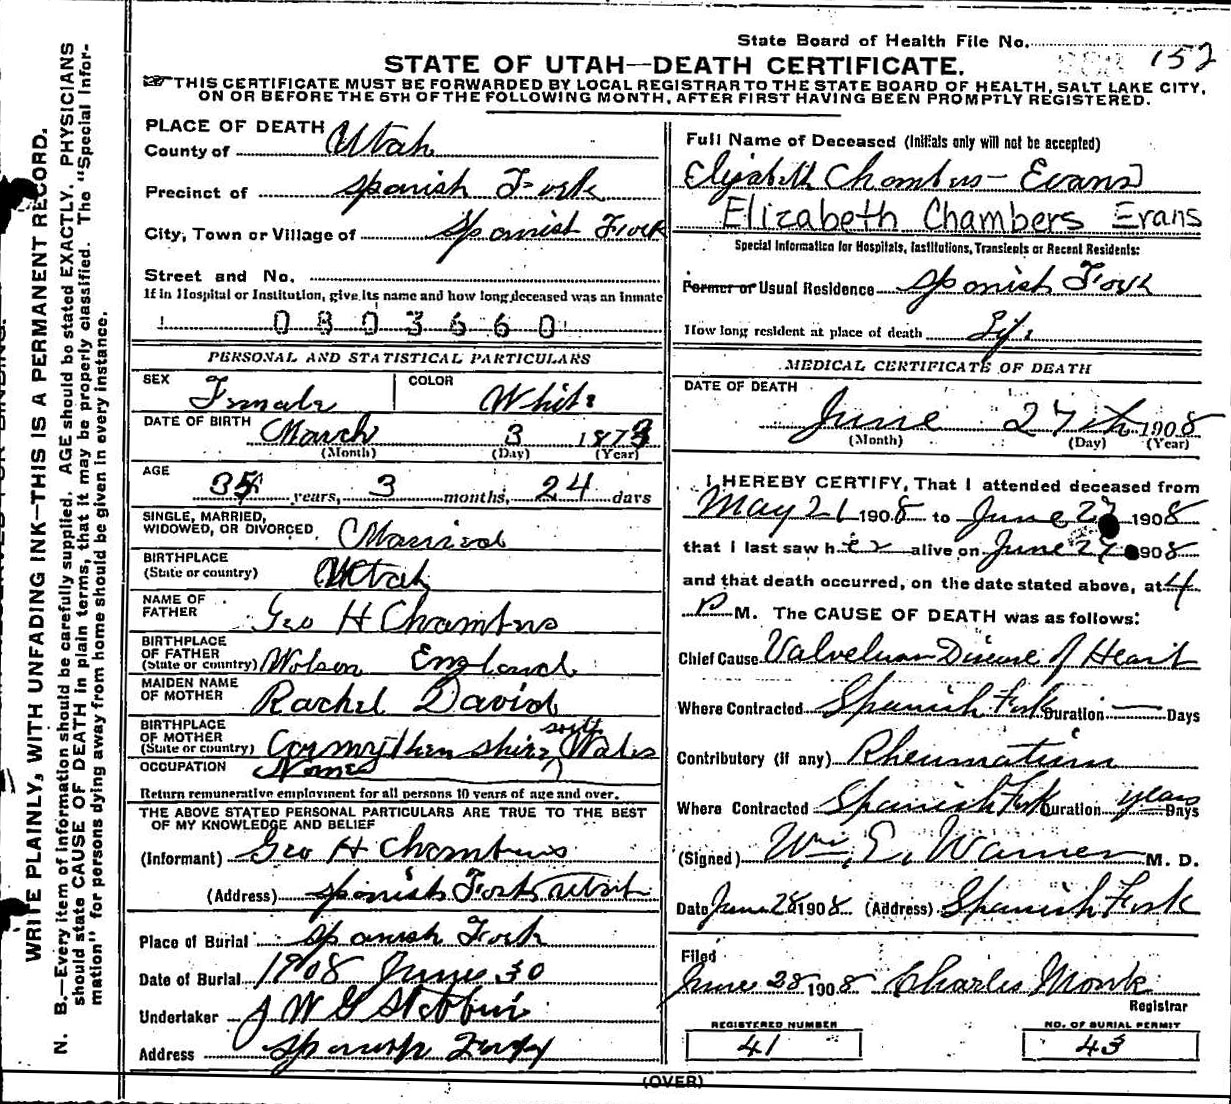 State Board of Health File No. 152
STATE OF UTAH—DEATH CERTIFICATE.
THIS CERTIFICATE MUST BE FORWARDED BY LOCAL REGISTRAR TO THE STATE BOARD OF HEALTH, SALT LAKE CITY,
ON OR BEFORE THE 5TH OF THE FOLLOWING MONTH, AFTER FIRST HAVING BEEN PROMPTLY REGISTERED.
WRITE PLAINLY, WITH UNFADING INK—THIS IS A PERMANENT RECORD.
N. B.—Every item of information should be carefully supplied. AGE should be stated EXACTLY. PHYSICIANS
should state CAUSE OF DEATH in plain terms, that it may be properly classified. The "Special Infor-
mation" for persons dying away from home should be given in every instance.
PLACE OF DEATH
County of Utah
Precinct of Spanish Fork
City, Town or Village of Spanish Fork
Street and No.
If in Hospital or Institution, give its name and how long deceased was an inmate
0803660
PERSONAL AND STATISTICAL PARTICULARS
SEX Female COLOR White
DATE OF BIRTH March 3 1873
(Month) (Day) (Year)
AGE 35 years, 3 months, 24 days
SINGLE, MARRIED,
WIDOWED, OR DIVORCED. Married
BIRTHPLACE
(State or country) Utah
NAME OF
FATHER Geo H Chambers
BIRTHPLACE
OF FATHER
(State or country) England
MAIDEN NAME
OF MOTHER Rachel David
BIRTHPLACE
OF MOTHER
(State or country) Cormythen shire south Wales
OCCUPATION
Return remunerative employment for all persons 10 years of age and over.
THE ABOVE STATED PERSONAL PARTICULARS ARE TRUE TO THE BEST
OF MY KNOWLEDGE AND BELIEF
(Informant) Geo H Chambers
(Address) Spanish Fork Utah
Place of Burial Spanish Fork
Date of Burial 1908 June 30
Undertaker J W G
Address Spanish Fork
Full Name of Deceased (Initials only will not be accepted)
Elizabeth Chambers - Evans
Elizabeth Chambers Evans
Special Information for Hospitals, Institutions, Transients or Recent Residents:
Former or Usual Residence Spanish Fork
How long resident at place of death Life
MEDICAL CERTIFICATE OF DEATH
DATE OF DEATH
June 27th 1908
(Month) (Day) (Year)
I HEREBY CERTIFY, That I attended deceased from
May 21 1908 to June 27 1908
that I last saw her alive on June 27 1908
and that death occurred, on the date stated above, at 4
P M. The CAUSE OF DEATH was as follows:
Chief Cause Valveluar Disease of Heart
Where Contracted Spanish Fork Duration — Days
Contributory (if any) Rheumatism
Where Contracted Spanish Fork Duration years Days
(Signed) Wm. E. Warner M. D.
Date June 28 1908 (Address) Spanish Fork
Filed
June 28 1908 Charles Monk
Registrar
REGISTERED NUMBER
41
NO. OF BURIAL PERMIT
43
(OVER)